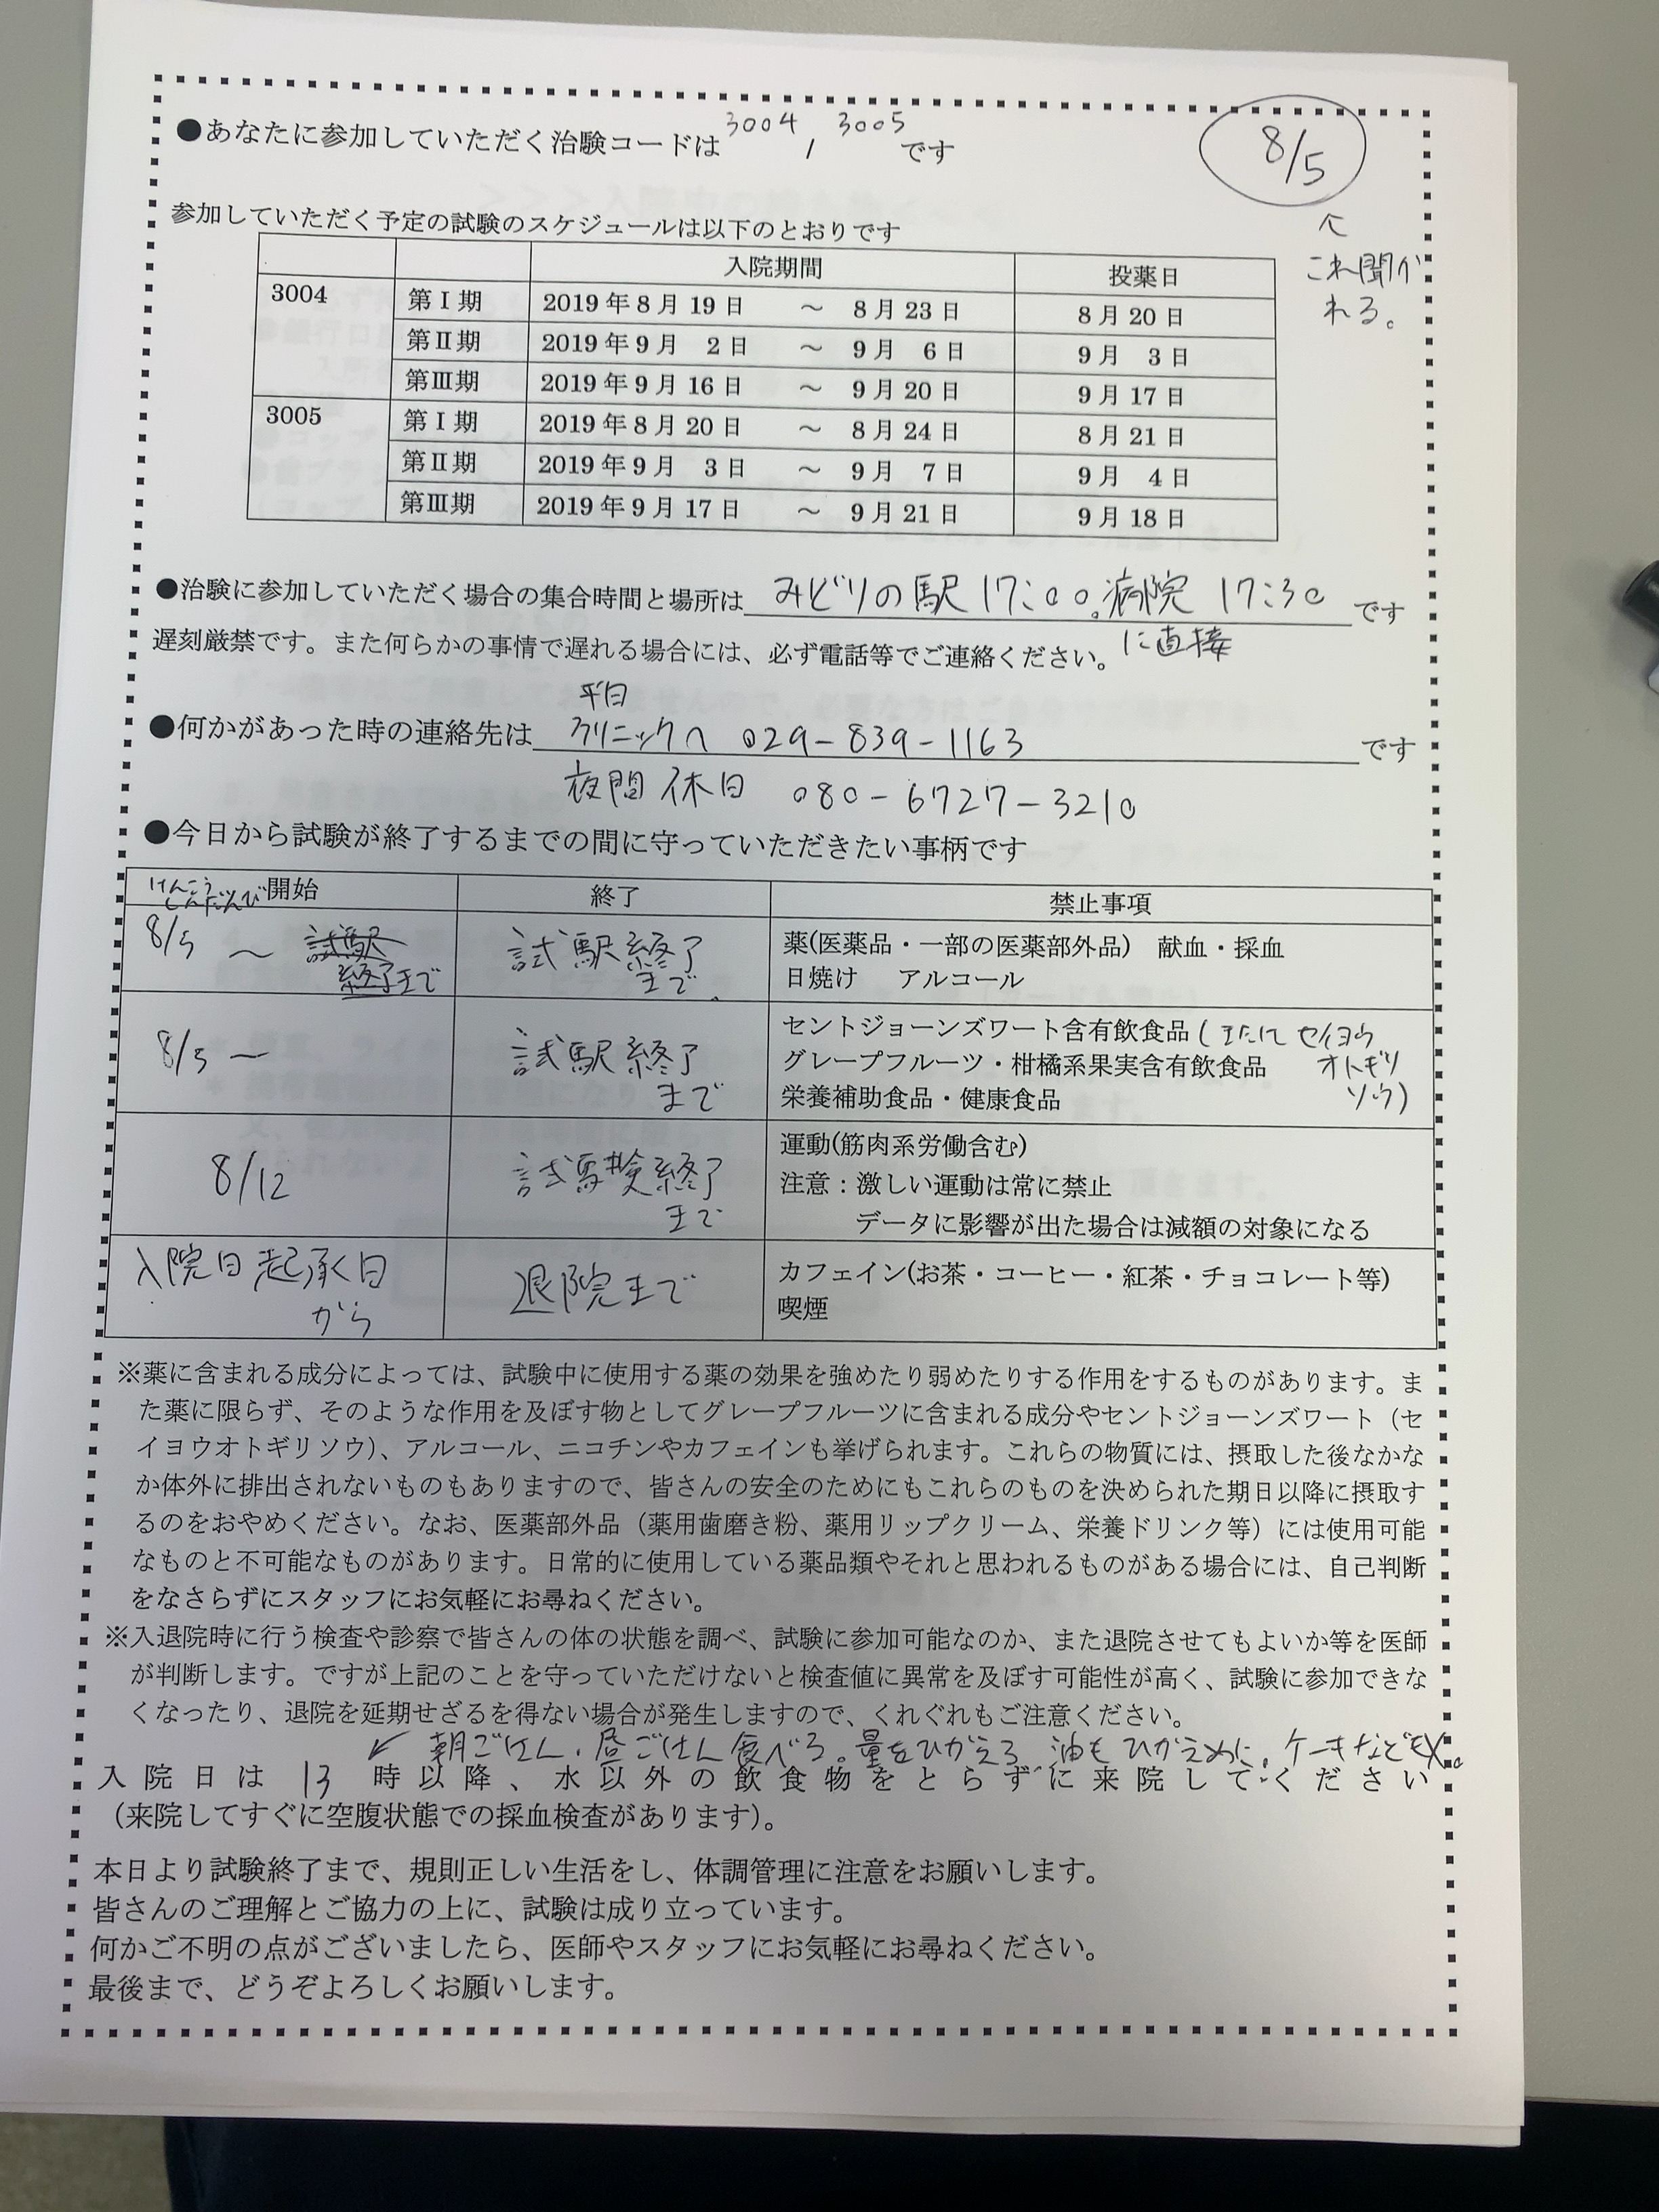 ●あなたに参加していただく治験コードは 3004 , 3005 です
8/5
↖
これ聞か
れる。
参加していただく予定の試験のスケジュールは以下のとおりです
入院期間 投薬日
3004 第Ⅰ期 2019年8月19日 ～ 8月23日 8月20日
第Ⅱ期 2019年9月 2日 ～ 9月 6日 9月 3日
第Ⅲ期 2019年9月16日 ～ 9月20日 9月17日
3005 第Ⅰ期 2019年8月20日 ～ 8月24日 8月21日
第Ⅱ期 2019年9月 3日 ～ 9月 7日 9月 4日
第Ⅲ期 2019年9月17日 ～ 9月21日 9月18日
●治験に参加していただく場合の集合時間と場所は みどりの駅 17:00。病院 17:30 です
に直接
遅刻厳禁です。また何らかの事情で遅れる場合には、必ず電話等でご連絡ください。
平日
●何かがあった時の連絡先は クリニックへ 029-839-1163 です
夜間 休日 080-6727-3210
●今日から試験が終了するまでの間に守っていただきたい事柄です
けんこう
しんだんび 開始 終了 禁止事項
8/5 ～ 試駅 試駅終了 薬(医薬品・一部の医薬部外品) 献血・採血
終了まで まで。 日焼け アルコール
8/5 ～ 試駅終了 セントジョーンズワート含有飲食品(またはセイヨウ
まで グレープフルーツ・柑橘系果実含有飲食品 オトギリ
栄養補助食品・健康食品 ソウ)
8/12 試験終了 運動(筋肉系労働含む)
まで 注意：激しい運動は常に禁止
データに影響が出た場合は減額の対象になる
入院日起承日 退院まで カフェイン(お茶・コーヒー・紅茶・チョコレート等)
から 喫煙
※薬に含まれる成分によっては、試験中に使用する薬の効果を強めたり弱めたりする作用をするものがあります。ま
た薬に限らず、そのような作用を及ぼす物としてグレープフルーツに含まれる成分やセントジョーンズワート（セ
イヨウオトギリソウ）、アルコール、ニコチンやカフェインも挙げられます。これらの物質には、摂取した後なかな
か体外に排出されないものもありますので、皆さんの安全のためにもこれらのものを決められた期日以降に摂取す
るのをおやめください。なお、医薬部外品（薬用歯磨き粉、薬用リップクリーム、栄養ドリンク等）には使用可能
なものと不可能なものがあります。日常的に使用している薬品類やそれと思われるものがある場合には、自己判断
をなさらずにスタッフにお気軽にお尋ねください。
※入退院時に行う検査や診察で皆さんの体の状態を調べ、試験に参加可能なのか、また退院させてもよいか等を医師
が判断します。ですが上記のことを守っていただけないと検査値に異常を及ぼす可能性が高く、試験に参加できな
くなったり、退院を延期せざるを得ない場合が発生しますので、くれぐれもご注意ください。
↙ 朝ごはん・昼ごはん食べる。量をひかえる。油もひかえめに。ケーキなども×。
入院日は 13 時以降、水以外の飲食物をとらずに来院してください
（来院してすぐに空腹状態での採血検査があります）。
本日より試験終了まで、規則正しい生活をし、体調管理に注意をお願いします。
皆さんのご理解とご協力の上に、試験は成り立っています。
何かご不明の点がございましたら、医師やスタッフにお気軽にお尋ねください。
最後まで、どうぞよろしくお願いします。